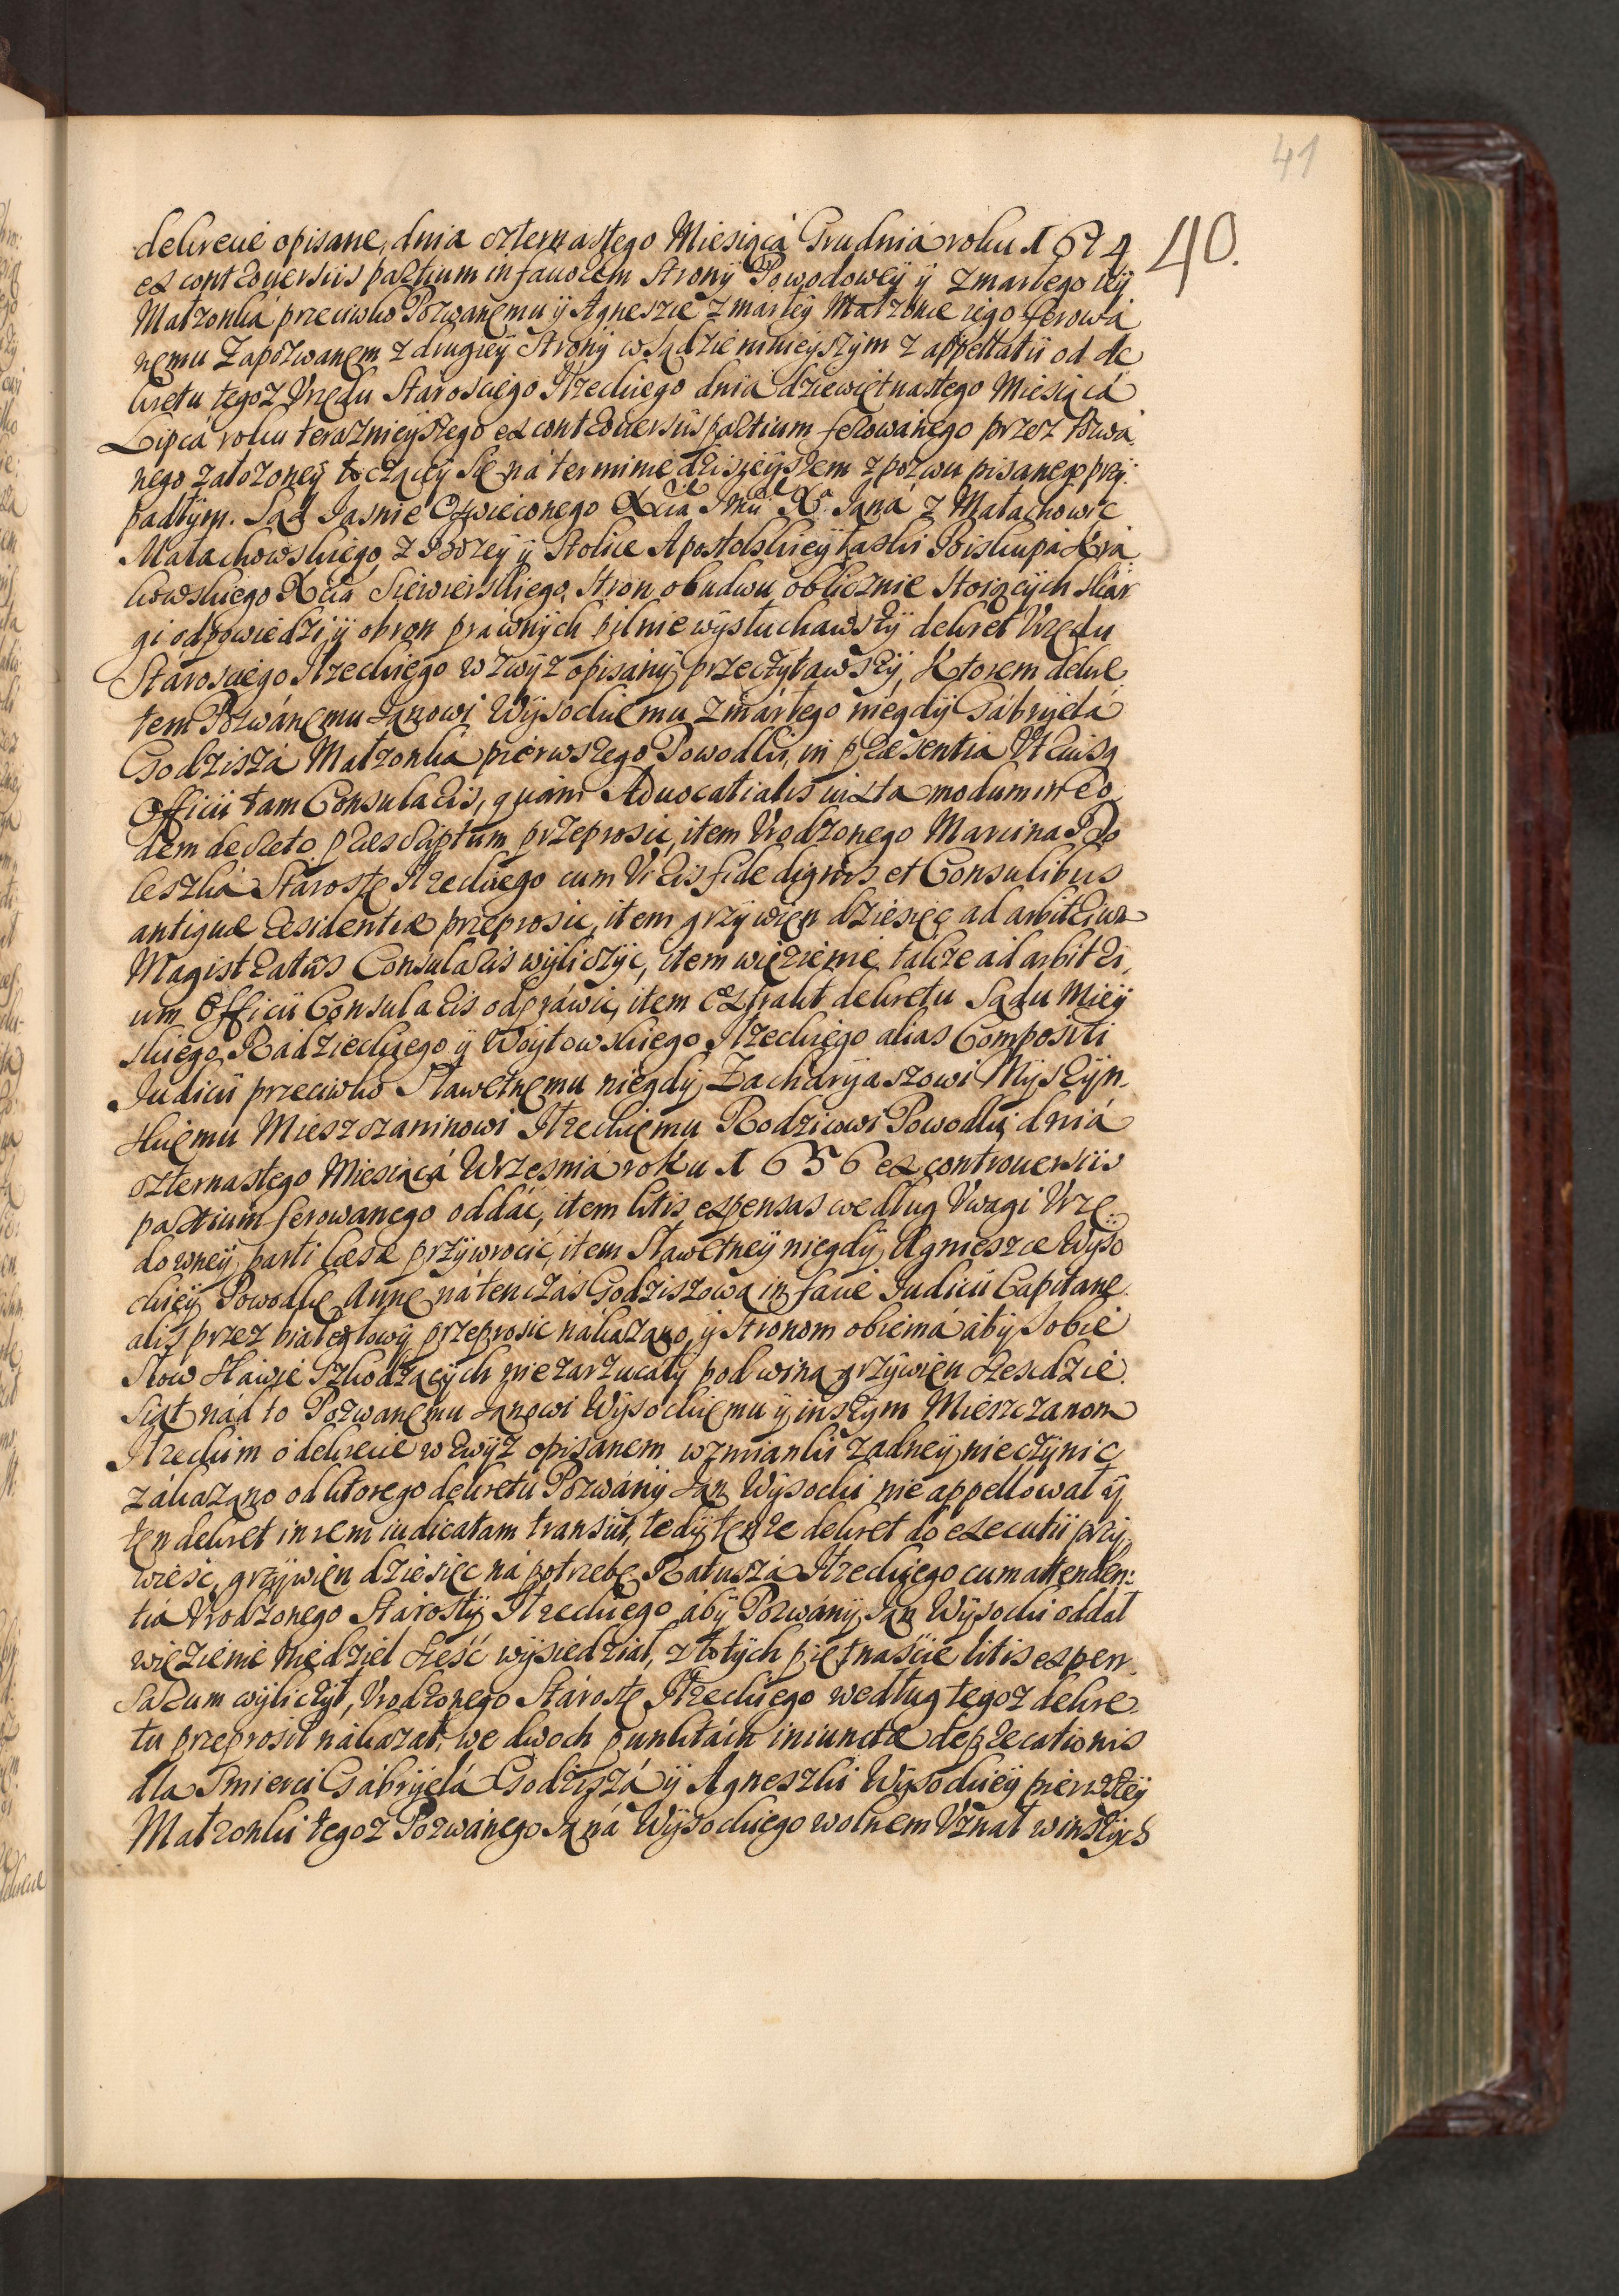 41
40.
dekrecie opisane, dnia czternastego Miesiąca Grudnia roku 1674
ex controuersiis partium in fauorem Strony Powodowey y zmarłego iey
Małżonka przeciwko Pozwanemu y Agnieszce zmarłey Małzonce iego ferowa
nemu Zapozwanem z drugiey Strony w Sądzie ninieyszym z appellatii od de
kretu tegoz Vrzędu Starosciego Iłzeckiego dnia dziewiętnastego Miesiąca
Lipca roku teraznieyszego ex controuersiis partium ferowanego przez Pozwa
nego załozoney toczącey Się na terminie dzisieyszem z pozwu pisanego przy:
padłym. Sąd Iasnie Oswieconego Xcia Imci Xa Iana z Małachowic
Małachowskiego z Bozey y Stolice Apostolskiey łaski Biskupa Kra
kowskiego Xcia Siewierskiego, Stron obudwu oblicznie Stoiących skar
gi odpowiedzi, y obron prawnych pilnie wysłuchawszy dekret Vrzędu
Starosciego Iłzeckiego wzwyz opisany przeczytawszy, Ktorem dekre
tem Pozwanemu Ianowi Wysockiemu zmarłego niegdy Gabryela
Godzisza Małzonka pierwszego Powodki, in præsentia Vtriusq
Officii tam Consularis, quam Aduocatialis iuxta modum in eo
dem decreto præscriptum przeprosic, item Vrodzonego Marcina Bo
leszka Starostę Iłzeckiego cum Viris fide dignis et Consulibus
antiquæ residentiæ przeprosic, item grzywien dziesięc ad arbitrium
Magistratus Consularis wyliczyc, item więzienie takze ad arbitri,
um Officii Consularis odprawic, item Extrakt dekretu Sądu Miey
skiego Radzieckiego y Woytowskiego Iłzeckiego alias Compositi
Iudicii przeciwko Sławetnemu niegdy Zacharyaszowi Myszyn-
skiemu Mieszczaninowi Iłzeckiemu Rodzicowi Powodki dnia
czternastego Miesiąca Wrzesnia roku 1656 ex controuersiis
partium ferowanego oddać, item litis expensas według Vwagi Vrzę:
downey parti læsæ przywrocic, item Sławetney niegdy Agnieszce Wyso
ckiey Powodkę Annę na tenczas Godziszową in facie Iudicii Capitane
alis przez białegłowy przeprosic nakazano, y Stronom obiema aby Sobie
Słow Sławie Szkodzących nie zarzucały pod winą grzywien szescdzie
siąt nad to Pozwanemu Ianowi Wysockiemu y inszym Mieszczanom
Iłzeckim o dekrecie wzwyz opisanem wzmianki zadney nie czynic
zakazano od ktorego dekretu Pozwany Ian Wysocki nie appellował y
ten dekret in rem iudicatam transiit, tedy tenze dekret do executii przy,
wiesc, grzywien dziesięc na potrzebę Ratusza Iłzeckiego cum attenden:
tia Vrodzonego Starosty Iłzeckiego aby Pozwany Ian Wysocki oddał
więzienie Niedziel szesć wysiedział, złotych piętnascie litis expen
sarum wyliczył, Vrodzonego Starostę Iłzeckiego według tegoz dekre
tu przeprosił nakazał, we dwoch punktach iniunctæ deprecationis
dla Smierci Gabryela Godzisza y Agnieszki Wysockiey pierwszey
Małzonki tegoz Pozwanego Iana Wysockiego wolnem Vznał w inszych